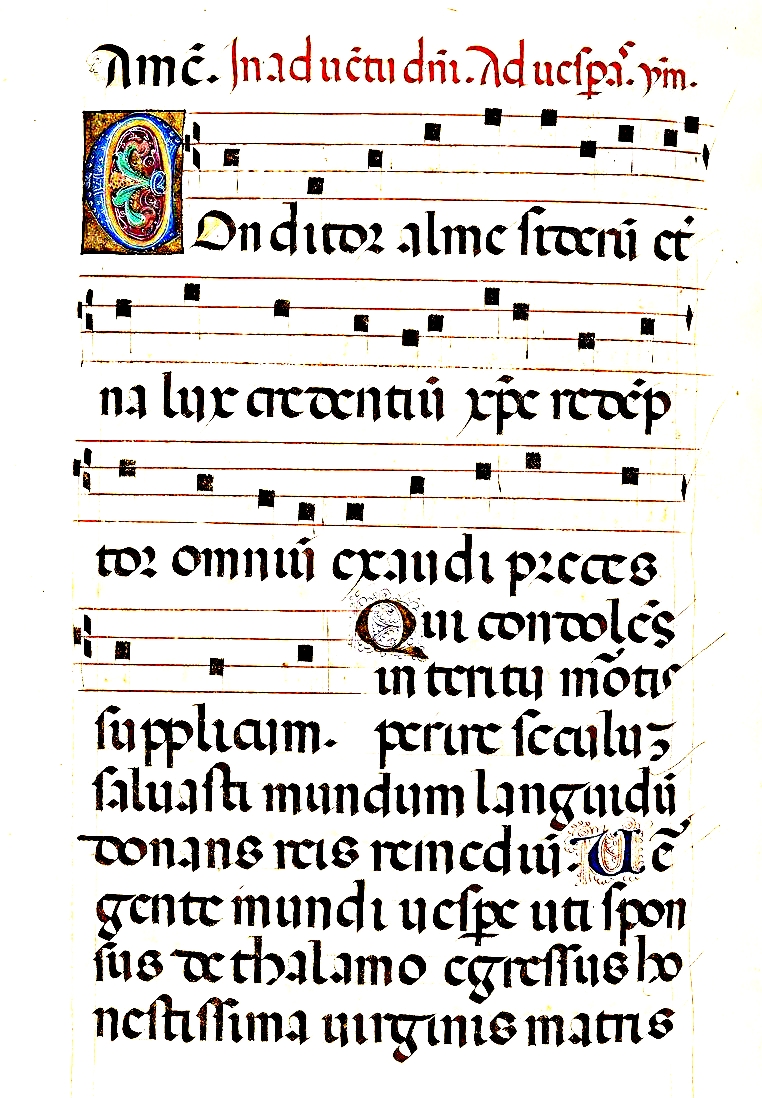 Amē. In aductu dn̄i. Ad uesp̱a᷒. ym̄.
COnditor alme siderū et̄
na lux credentiū xp̄e redēp
tor omniū exaudi preces
Qui condolēs
interitu mōtis
supplicum. perire seculuꝫ
saluasti mundum languidū
donans reis remediū. Uē
gente mundi uesꝑe uti spon
sus de thalamo egressus ho
nestissima uirginis matris